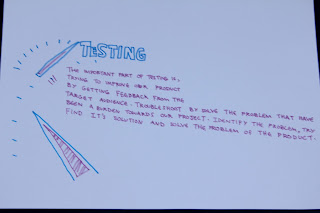 TESTING
THE IMPORTANT PART OF TESTING IS,
TRYING TO IMPROVE OUR PRODUCT
BY GETTING FEEDBACK FROM THE
TARGET AUDIENCE. TROUBLESHOOT BY SOLVE THE PROBLEM THAT HAVE
BEEN A BURDEN TOWARDS OUR PROJECT. IDENTIFY THE PROBLEM, TRY
FIND IT'S SOLUTION AND SOLVE THE PROBLEM OF THE PRODUCT.